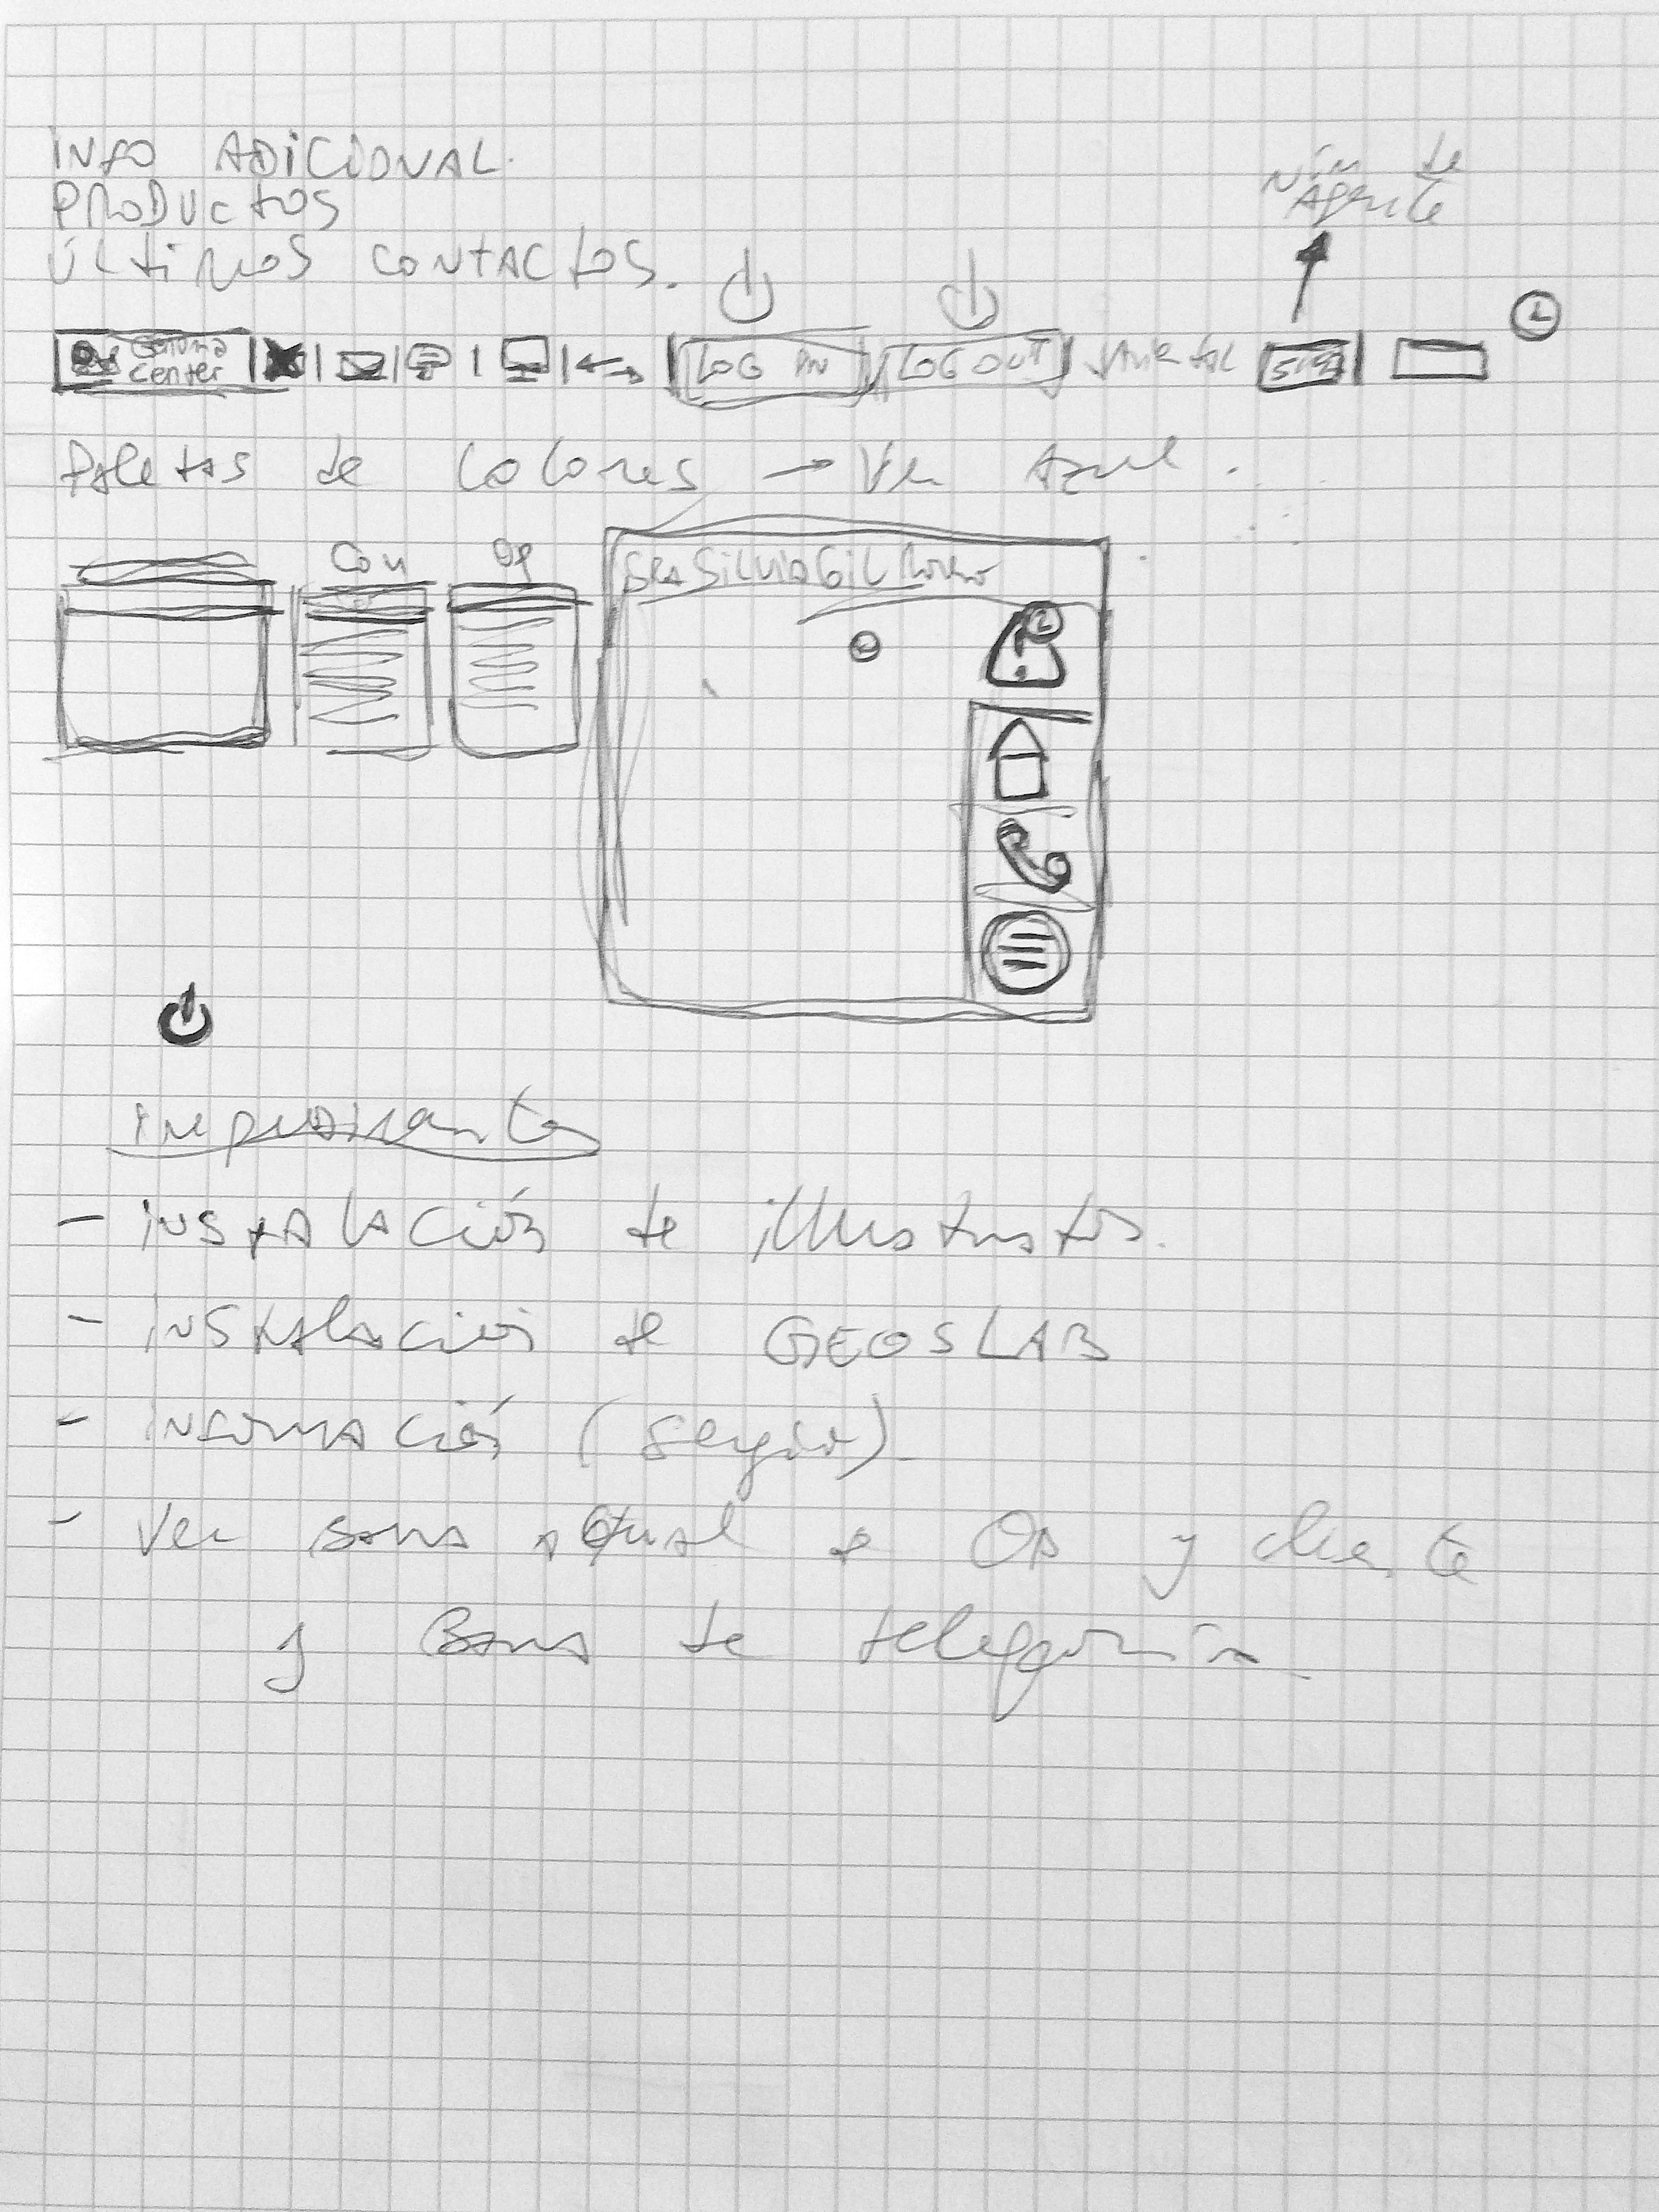 INFO ADICIONAL.
PRODUCTOS
ÚLTIMOS CONTACTOS.
Núm de
Agente
center
LOG IN
LOG OUT
Paletas de colores → Ver Azul.
Con
Op
SRA SILVIA GIL
Importante
- instalación de illustrator.
- instalación de GEOSLAB
- información (Sergio).
- Ver barra actual de OP y cliente
y Barra de telefonía.